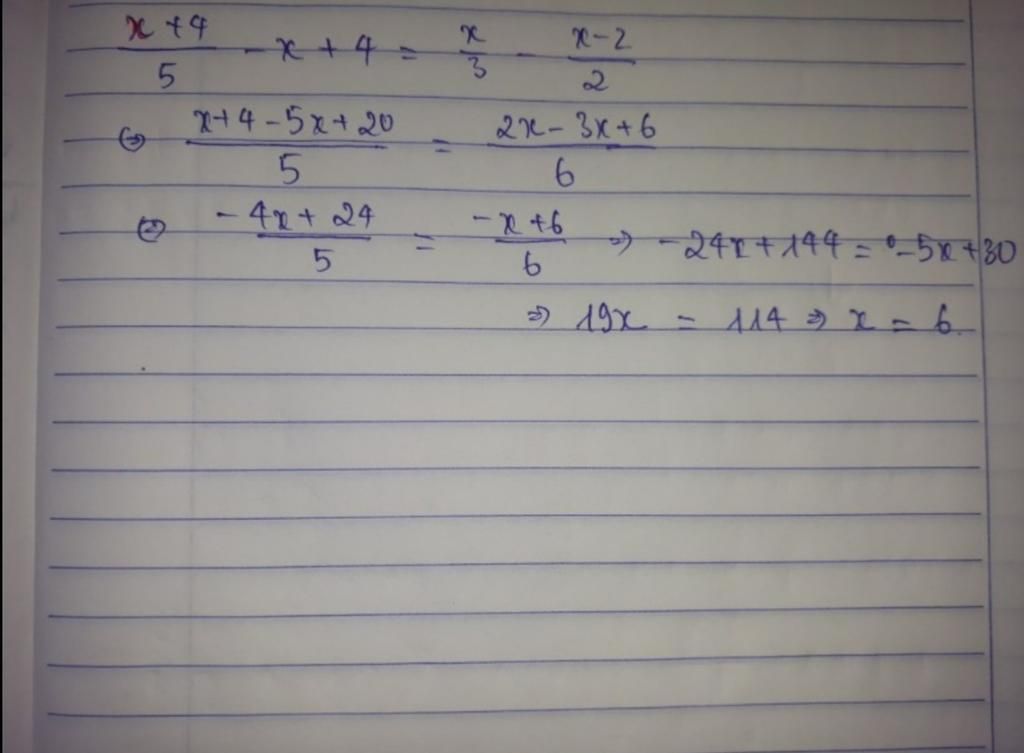 (x+4)/5 - x + 4 = x/3 - (x-2)/2
⇔ (x+4-5x+20)/5 = (2x-3x+6)/6
⇔ (-4x+24)/5 = (-x+6)/6 ⇒ -24x+144 = -5x+30
⇒ 19x = 114 ⇒ x = 6